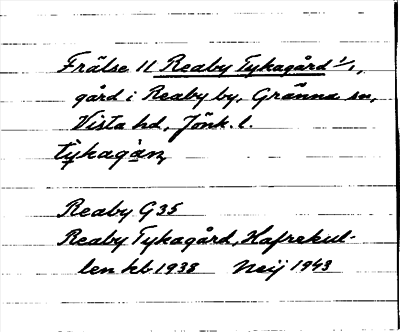 Frälse II Reaby Tykagård 1/1,
gård i Reaby by, Gränna sn,
Vista hd, Jönk. l.
tỳkagàn,
Reaby G35
Reaby Tykagård, Hafrekul-
len hb 1938 Neij 1943